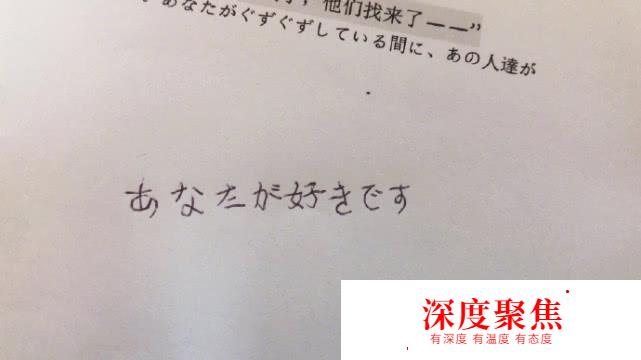 ，他们找来了——”
あなたがぐずぐずしている間に、あの人達が
あなたが好きです
深度聚焦
有深度 有温度 有态度